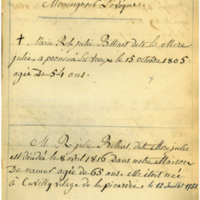 Monseigneur Leveque.
† Marie Rose Julie Billiart dite la Mère
Julie, a prononcé ses vœux le 15 octobre 1805
agée de 54 ans.
M. R. Julie Billiart, dite Mère Julie
est décédée le 8 avril 1816 dans notre Maison
de Namur agée de 65 ans. Elle était née
à Cuvilly village de la picardie le 12 Juillet 1751